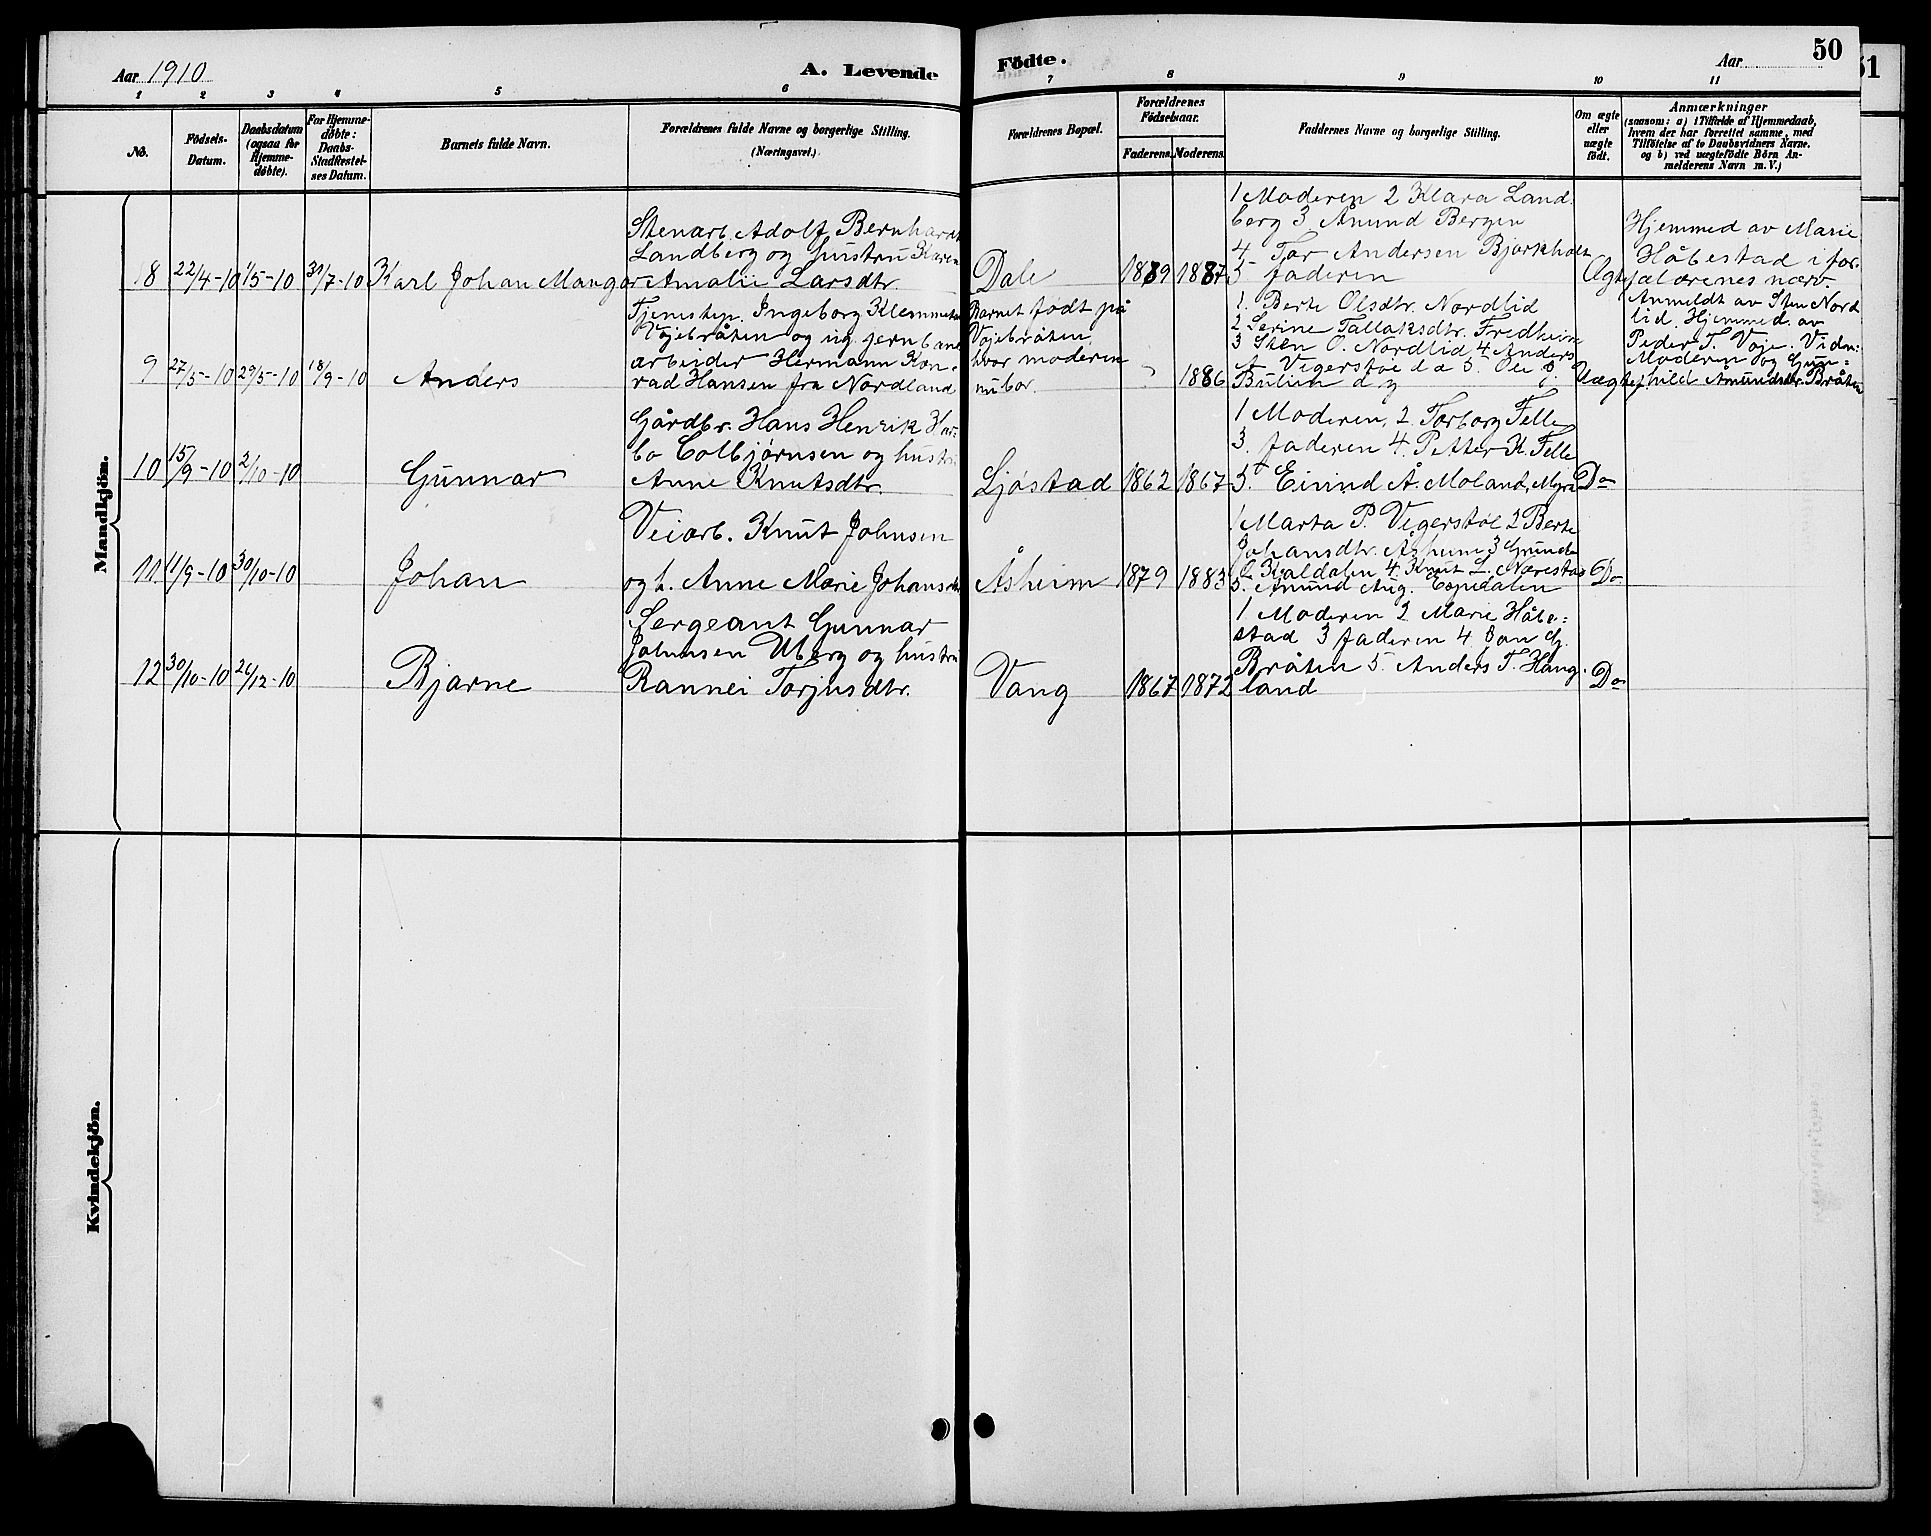 Aar 1910
A. Levende
Födte.
Aar
50
51
1
2
3
4
5
6
7
8
9
10
11
No.
Födsels-
Datum.
Daabsdatum
(ogsaa for
Hjemme-
døbte).
For Hjemme-
døbte:
Daabs-
Stadfæstel-
ses Datum.
Barnets fulde Navn.
Forældrenes fulde Navne og borgerlige Stilling.
(Næringsvei.)
Forældrenes Bopæl.
Forældrenes
Födselsaar.
Faderens.
Moderens.
Faddernes Navne og borgerlige Stilling.
Om ægte
eller
uægte
født.
Anmærkninger
(saasom: a) i Tilfælde af Hjemmedaab,
hvem der har forrettet samme, med
Tilføielse af to Daabsvidners Navne.
og b) ved uægtefødte Børn An-
melderens Navn m. V.)
Mandkjön.
8
22/4-10
1/5-10
31/7-10
Karl Johan Mangor
Stenarb. Adolf Bernhardt
Landberg og hustru Karen
Amalie Larsdtr.
Dale
1889
1887
1 Moderen 2 Klara Land
berg 3 Ånund Bergen
4 Tor Andersen Bjorkholt
5 faderen
Ægte
Hjemmed av Marie
Håbestad i for-
ælærenes nærv.
9
27/5-10
29/5-10
18/9-10
Anders
Tjenestep. Ingeborg Klemmets
Vøjebråten og ug. jernbane
arbeider Hermann Kon-
rad Hansen fra Nordland
Barnet født på
Vøjebråten,
hvor moderen
nu bor.
1886
1. Berte Olsdtr. Nordlid
2 Serine Tallaksdtr. Fredheim
3 Sten O. Nordlid 4 Anders
A Vegerstøe d æ 5. Ole
Bulien d y
Uægte
Anmeldt av Sten Nord
lid. Hjemmed. av
Peder T. Voje. Vidn:
Moderen og Gun-
hild Åmundsdtr. Bråten
10
15/9-10
2/10-10
Gunnar
Gårdbr. Hans Henrik Har-
bo Colbjørnsen og hustru
Anne Knutsdtr.
Ljøstad
1862
1867
1 Moderen, 2 Torborg Felle
3. faderen 4. Petter K Felle
5. Eivind Å. Moland, Myra
Do
11.
11/9-10
30/10-10
Johan
Veiarb. Knut Johnsen
og h. Anne Marie Johansdtr
Åsheim
1879
1883
1 Marta P. Vegerstøl 2 Berte
Johansdtr. Åsheim 3 Gunde
O Kaldalen 4 Knut L. Nærestad
5. Anund Aug. Espedalen
Do
12
30/10-10
26/12-10
Bjarne
Sergeant Gunnar
Johnsen Uberg og hustru
Rannei Torjusdtr.
Vang
1867
1872
1 Moderen 2 Marie Håbe-
stad 3 faderen 4 Jon G.
Bråten 5. Anders T. Haug-
land
Do
Kvindekjön.